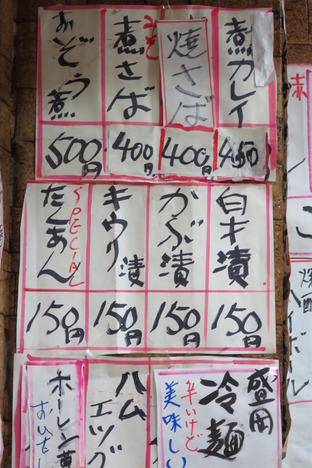 煮カレイ
450円
焼さば
400円
みそ
煮さば
400円
もぞう煮
500円
白才漬
150円
かぶ漬
150円
キウリ漬
150円
SPECIAL
たくあん
150円
盛岡
冷麺
辛いけど
美味しい
ハム
エッグ
ホーレン草
おひた